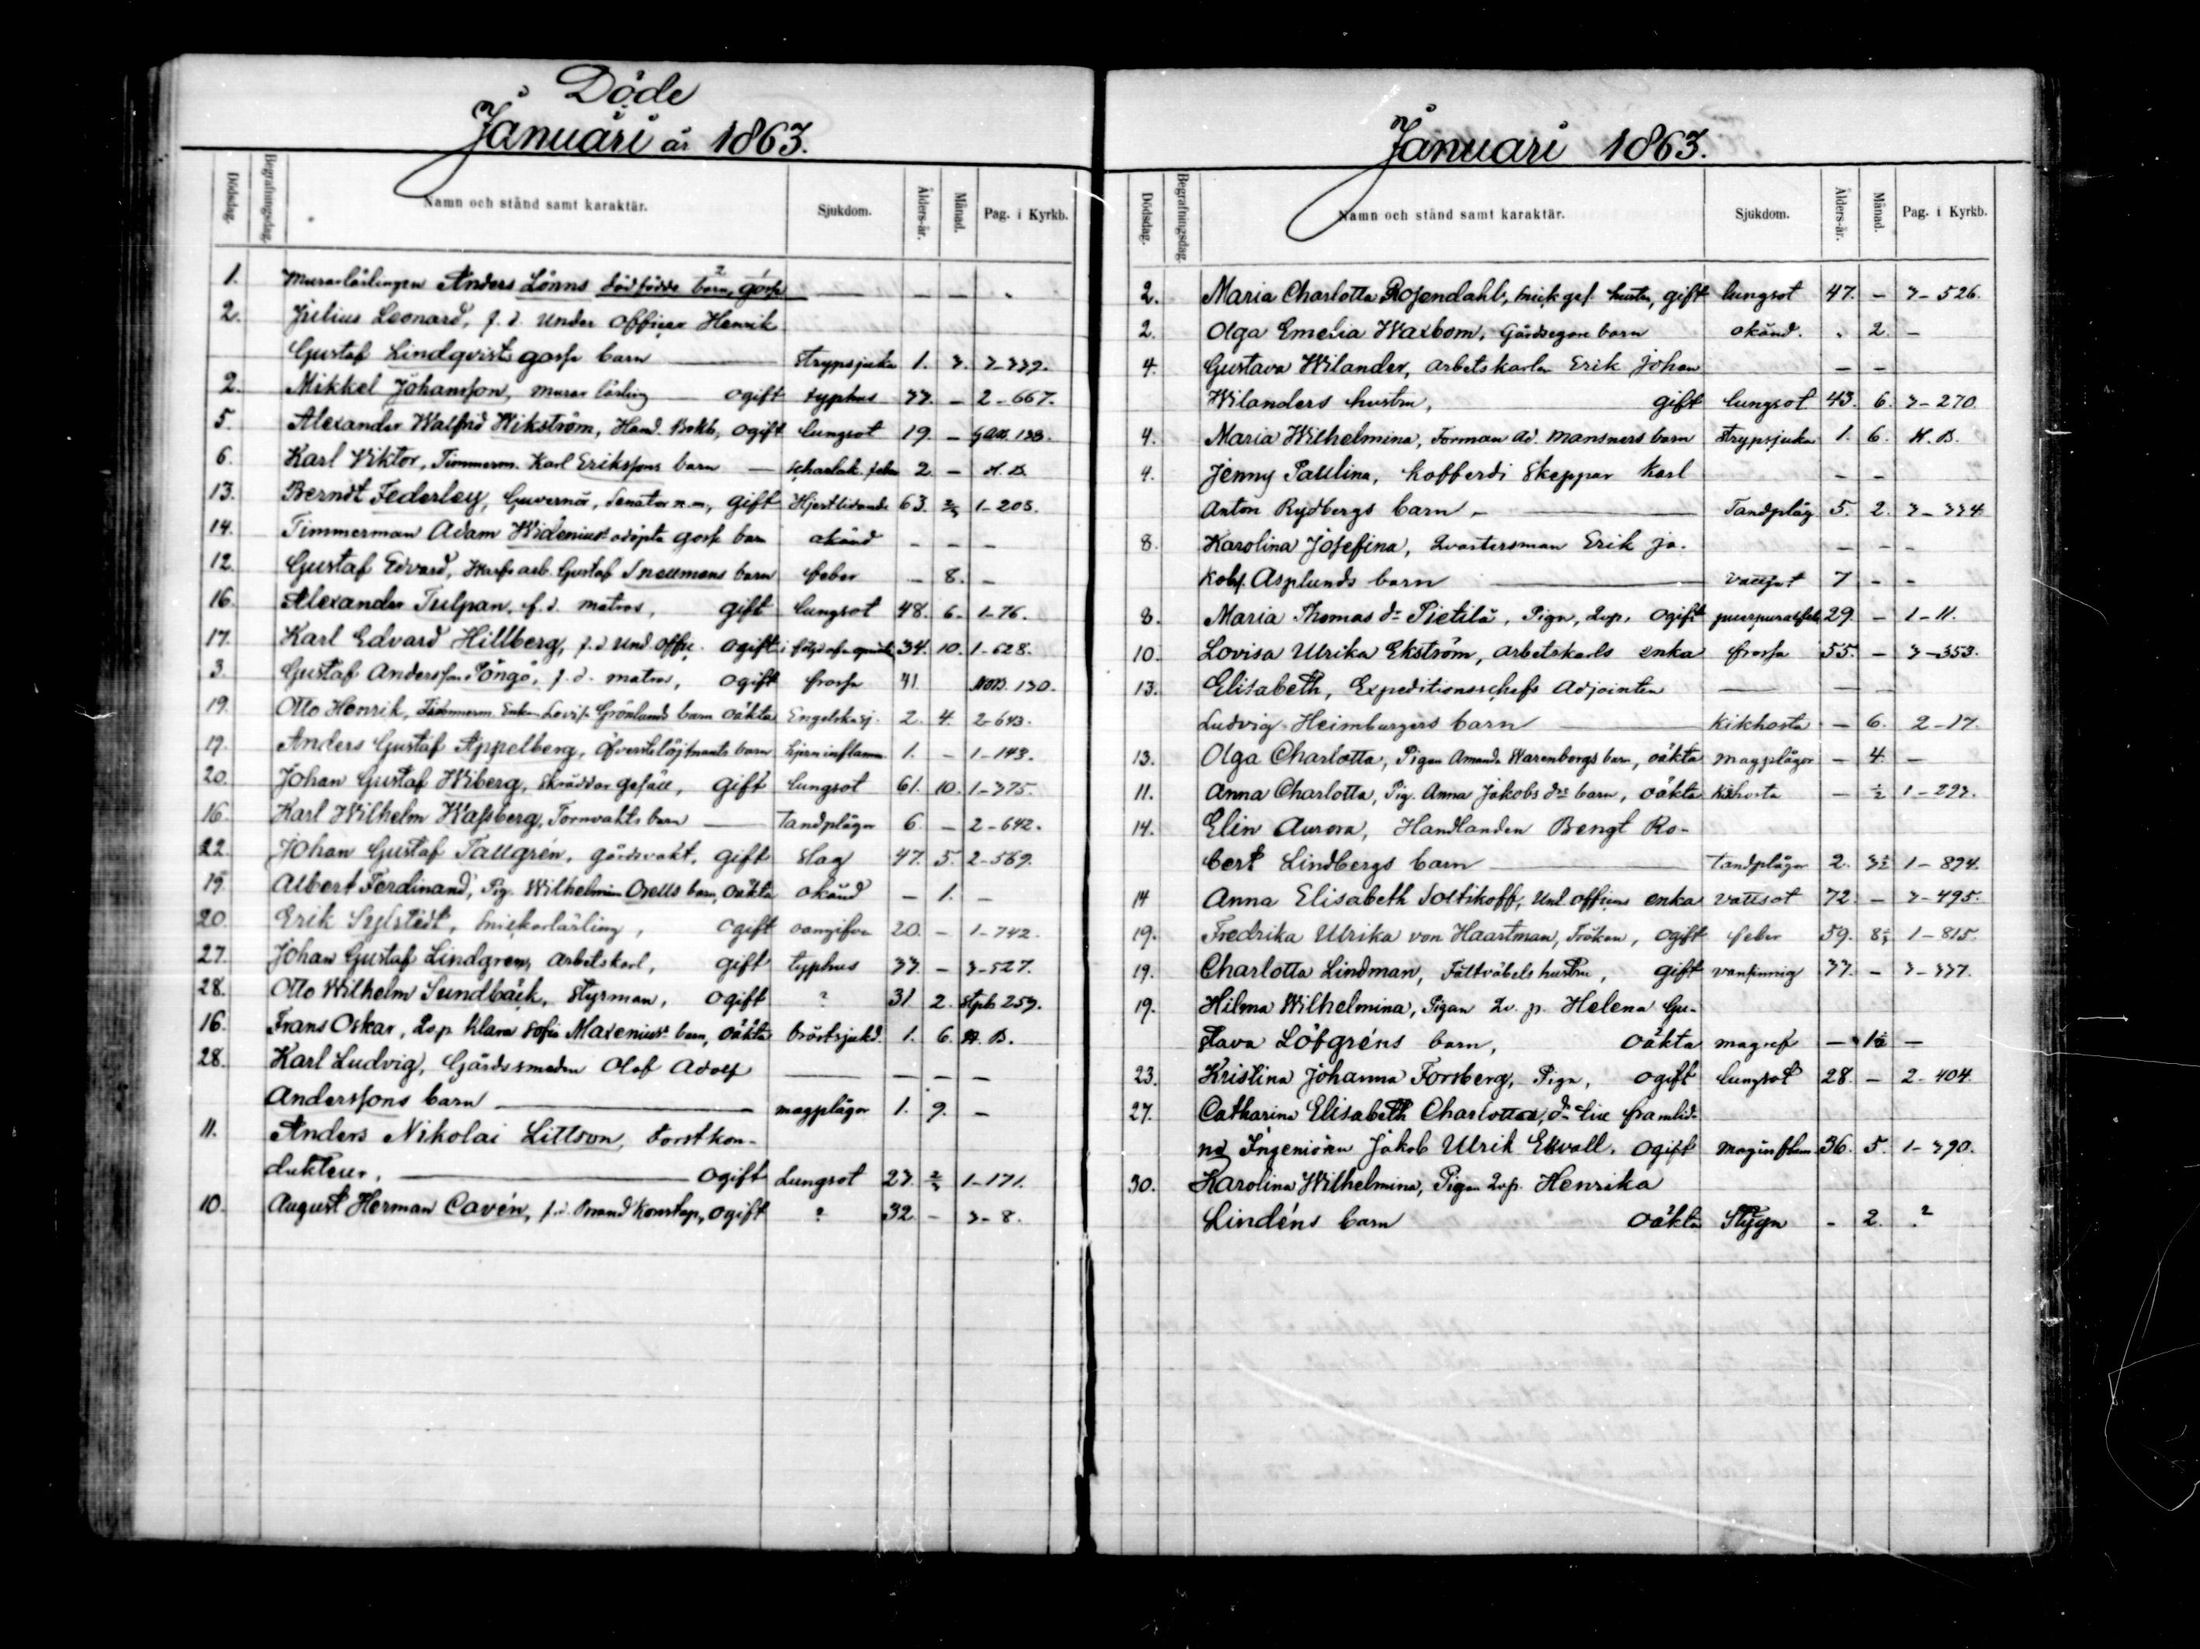 Döde
Januari år 1863.
Dödsdag. Begrafningsdag. Namn och stånd samt karaktär. Sjukdom. Ålders-år. Månad. Pag. i Kyrkb.
1. Murarlärlingen Anders Lönns dödfödde barn, gosse — — — -
2. Julius Leonard, f. d. Under officer Henrik
Gustaf Lindqvists gosse barn — Strypsjuka 1. 3. 3-339.
2. Mikkel Johansson, murar lärling — ogift typhus 33. — 2-667.
5. Alexander Walfrid Wikström, Hand. Bokh, ogift lungsot 19. — 133.
6. Karl Viktor, Timmerm. Karl Erikssons barn — scharlak. feber 2 — N. B.
13. Berndt Federley, Guvernör, Senator m.m, gift Hjertlidande 63. 2/3 1-205.
14. Timmerman Adam Widenius odöpta gosse barn okänd — — —
12. Gustaf Edvard, arb. Gustaf Sneumans barn feber — 8. —
16. Alexander Tulpan, f. d. matros, gift lungsot 48. 6. 1-76.
17. Karl Edvard Hillberg, f. d Und. offic. ogift i följd af 34. 10. 1-628.
3. Gustaf Andersson Öngö, f. d. matros, ogift frossa 41 130.
19. Otto Henrik, Timmerm. Enkan Lovisa Grönlunds barn oäkta Engelska sj. 2. 4. 2-643.
19. Anders Gustaf Appelberg, Öfverstelöjtnants barn hjerninflamm. 1. — 1-143.
20. Johan Gustaf Wiberg, Skräddar gesäll, gift lungsot 61. 10. 1-375.
16. Karl Wilhelm Wassberg, Tornvakts barn — Tandplågor 6. — 2-642.
22. Johan Gustaf Tallgrén, gårdsvakt, gift Slag 47. 5. 2-569.
19. Albert Ferdinand, Pig. Wilhelmina Osells barn, oäkta okänd — 1. —
20. Erik Sylstedt, snickarlärling, ogift oangifven 20. — 1-742.
27. Johan Gustaf Lindgren, arbetskarl, gift typhus 33. — 3-527.
28. Otto Wilhelm Sundbäck, Styrman, ogift ? 31 2. Stpb 259.
16. Frans Oskar, Qvp. Klara Sofia Maxenius barn, oäkta bröstsjukd. 1. 6. N. B.
28. Karl Ludvig, Gårdssmeden Olof Adolf — — — —
Anderssons barn — magplågor 1. 9. —
11. Anders Nikolai Littson, Forstkon-
dukteur, — ogift Lungsot 23. 2/3 1-171.
10. August Herman Cavén, f. d. Brand Konstap, ogift ? 32 — 3-8.
Januari 1863.
Dödsdag. Begrafningsdag. Namn och stånd samt karaktär. Sjukdom. Ålders-år. Månad. Pag. i Kyrkb.
2. Maria Charlotta Rosendahl, snick. ges. hustru, gift lungsot 47. — 3-526.
2. Olga Emelia Waxbom, Gårdsegare barn okänd. - 2. —
4. Gustava Wilander, arbetskarlen Erik Johan — —
Wilanders hustru, gift lungsot 43. 6. 3-270.
4. Maria Wilhelmina, Forman Ad. Mansners barn Strypsjuka 1. 6. N. B.
4. Jenny Paulina, Kofferdi Skeppar Karl — —
Anton Rydbergs barn, — Tandplåg 5. 2. 3-334.
8. Karolina Josefina, Qvartersman Erik Ja- — — —
kobs. Asplunds barn — vattsot 7 — —
8. Maria Thomas dr Pietilä, Piga, Qvp, ogift puerpuralfeb. 29. — 1-11.
10. Lovisa Ulrika Ekström, arbetskarls enka frossa 55. — 3-353.
13. Elisabeth, Expeditionschefs Adjointen — — —
Ludvig Heimburgers barn — Kikhosta — 6. 2-17.
13. Olga Charlotta, Pigan Amanda Warenborgs barn, oäkta magplågor — 4. —
11. Anna Charlotta, Pig. Anna Jakobs drs barn, oäkta Kikhosta — ½ 1-293.
14. Elin Aurora, Handlanden Bengt Ro-
bert Lindbergs barn — tandplågor 2. 3½ 1-894.
14 Anna Elisabeth Soltikoff, Und. officers enka vattsot 72. — 3-495.
19. Fredrika Ulrika von Haartman, Fröken, ogift feber 59. 8⅔ 1-815.
19. Charlotta Lindman, Fältväbels hustru, gift vansinnig 33. — 3-337.
19. Hilma Wilhelmina, Pigan Qv. p. Helena Gu-
stava Löfgréns barn, oäkta magref — 1½ —
23. Kristina Johanna Forsberg, Piga, ogift lungsot 28. — 2-404.
27. Catharina Elisabeth Charlotta, dr till framlid-
ne Ingeniören Jakob Ulrik Ekvall. ogift maginflam 36. 5. 1-390.
30. Karolina Wilhelmina, Pigan Qvp. Henrika
Lindéns barn oäkta Stygn - 2. ?